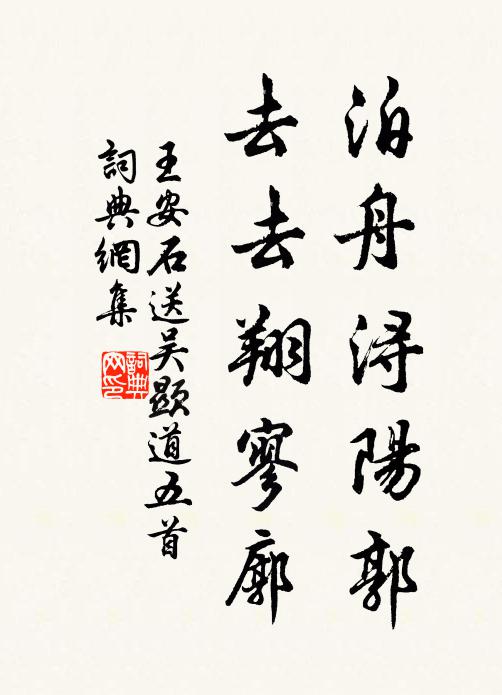 泊舟潯陽郭
去去翔寥廓
王安石送吴顯道五首
詞典網集
詞典网印